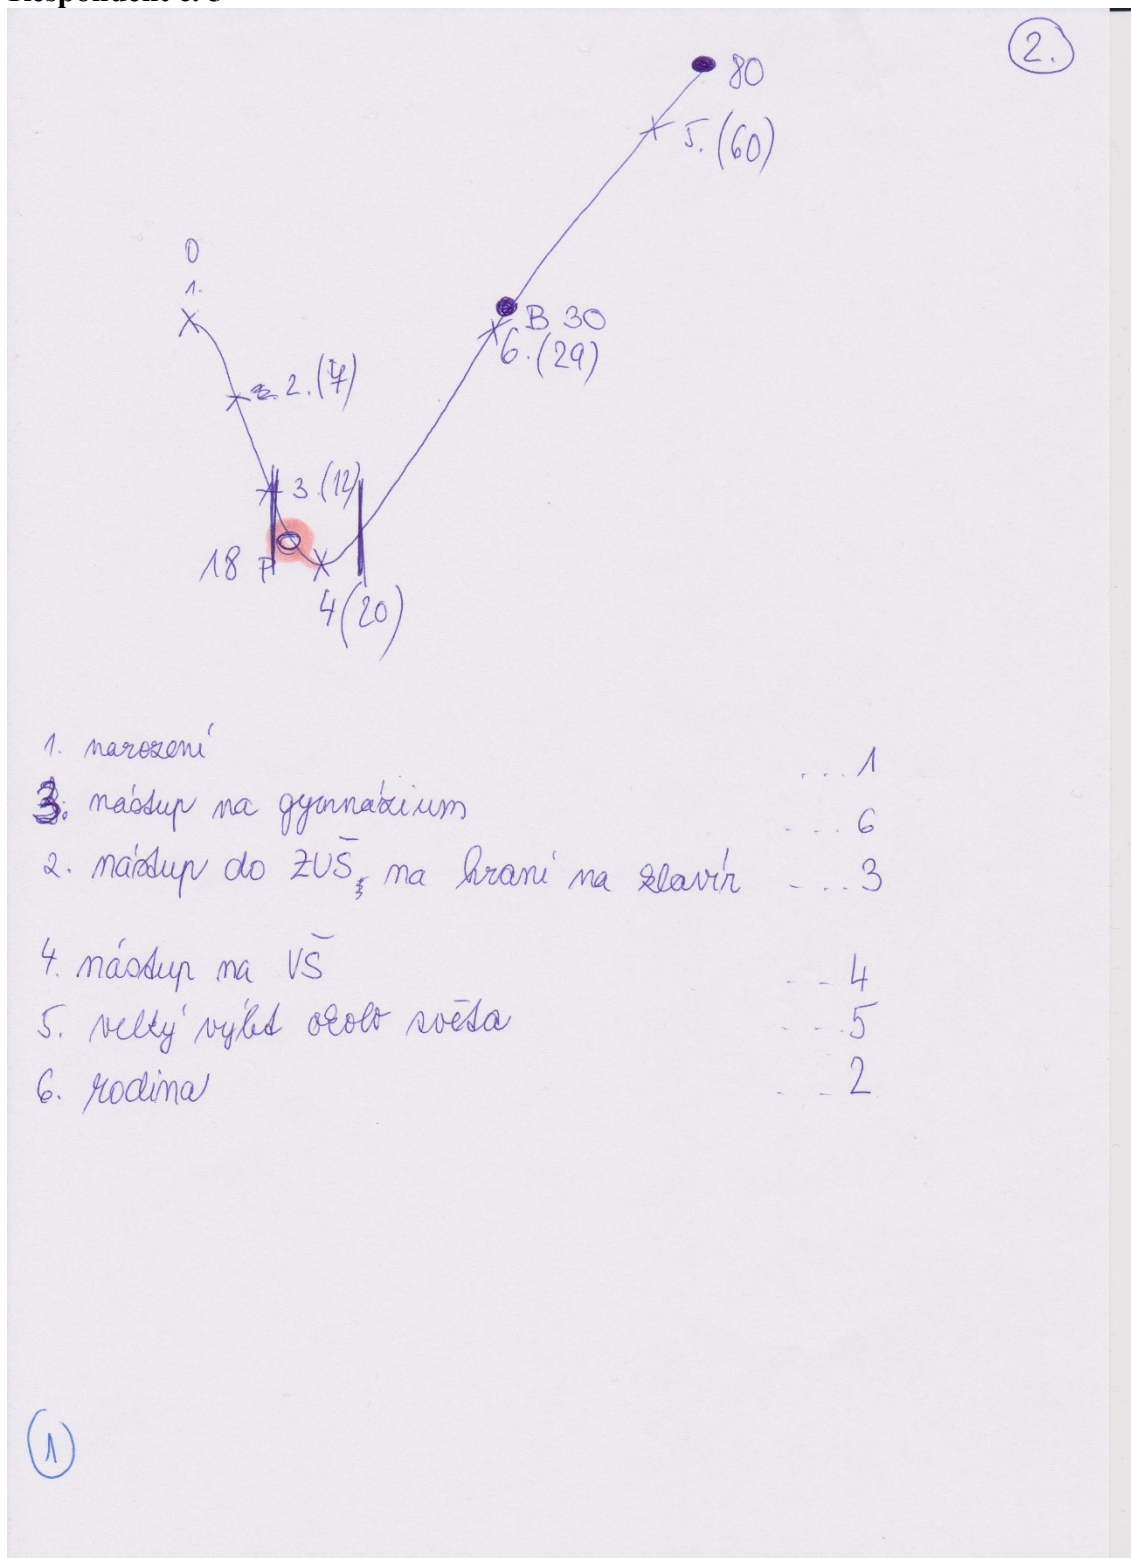 2.
80
5. (60)
0
1.
B 30
6. (29)
2. (7)
3. (12)
18 P
4 (20)
1. narození ... 1
3. nástup na gymnázium ... 6
2. nástup do ZUŠ, na hraní na klavír ... 3
4. nástup na VŠ ... 4
5. velký výlet okolo světa ... 5
6. rodina ... 2
1